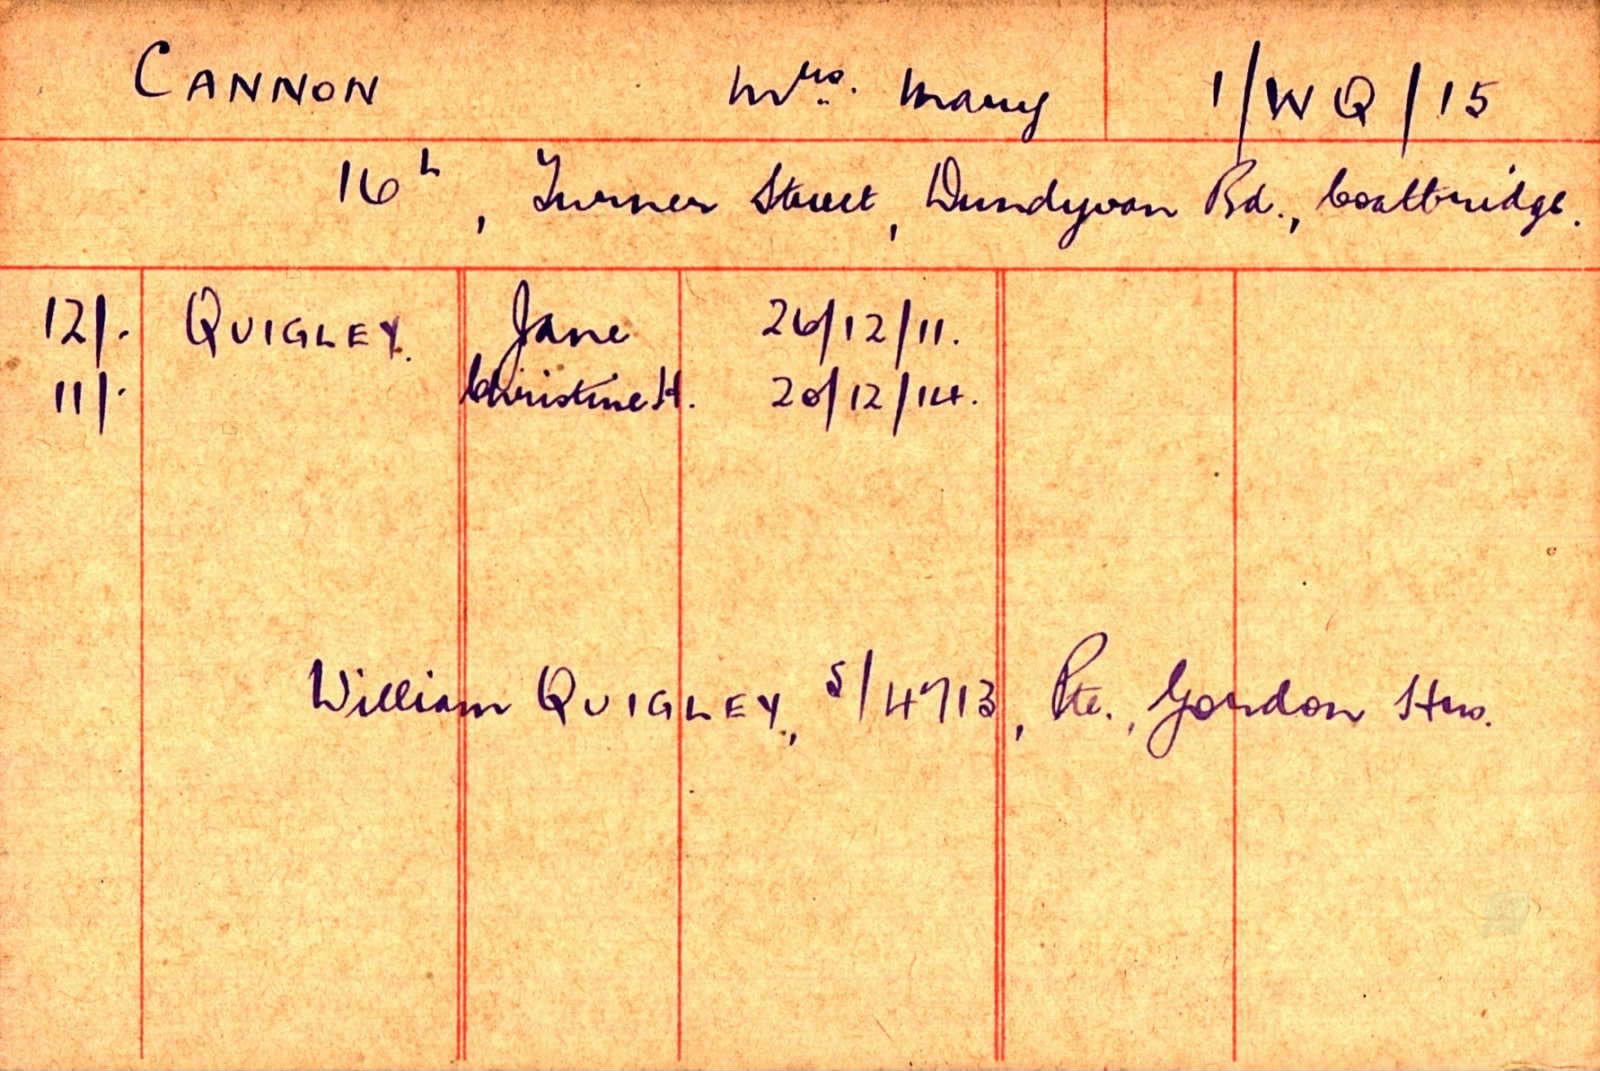 CANNON Mrs. Mary 1/WQ/15
16ᴸ, Turner Street, Dundyvan Rd., Coatbridge.
12/. QUIGLEY. Jane 26/12/11.
11/. Christine H. 20/12/14.
William QUIGLEY, S/4713, Pte., Gordon Hrs.